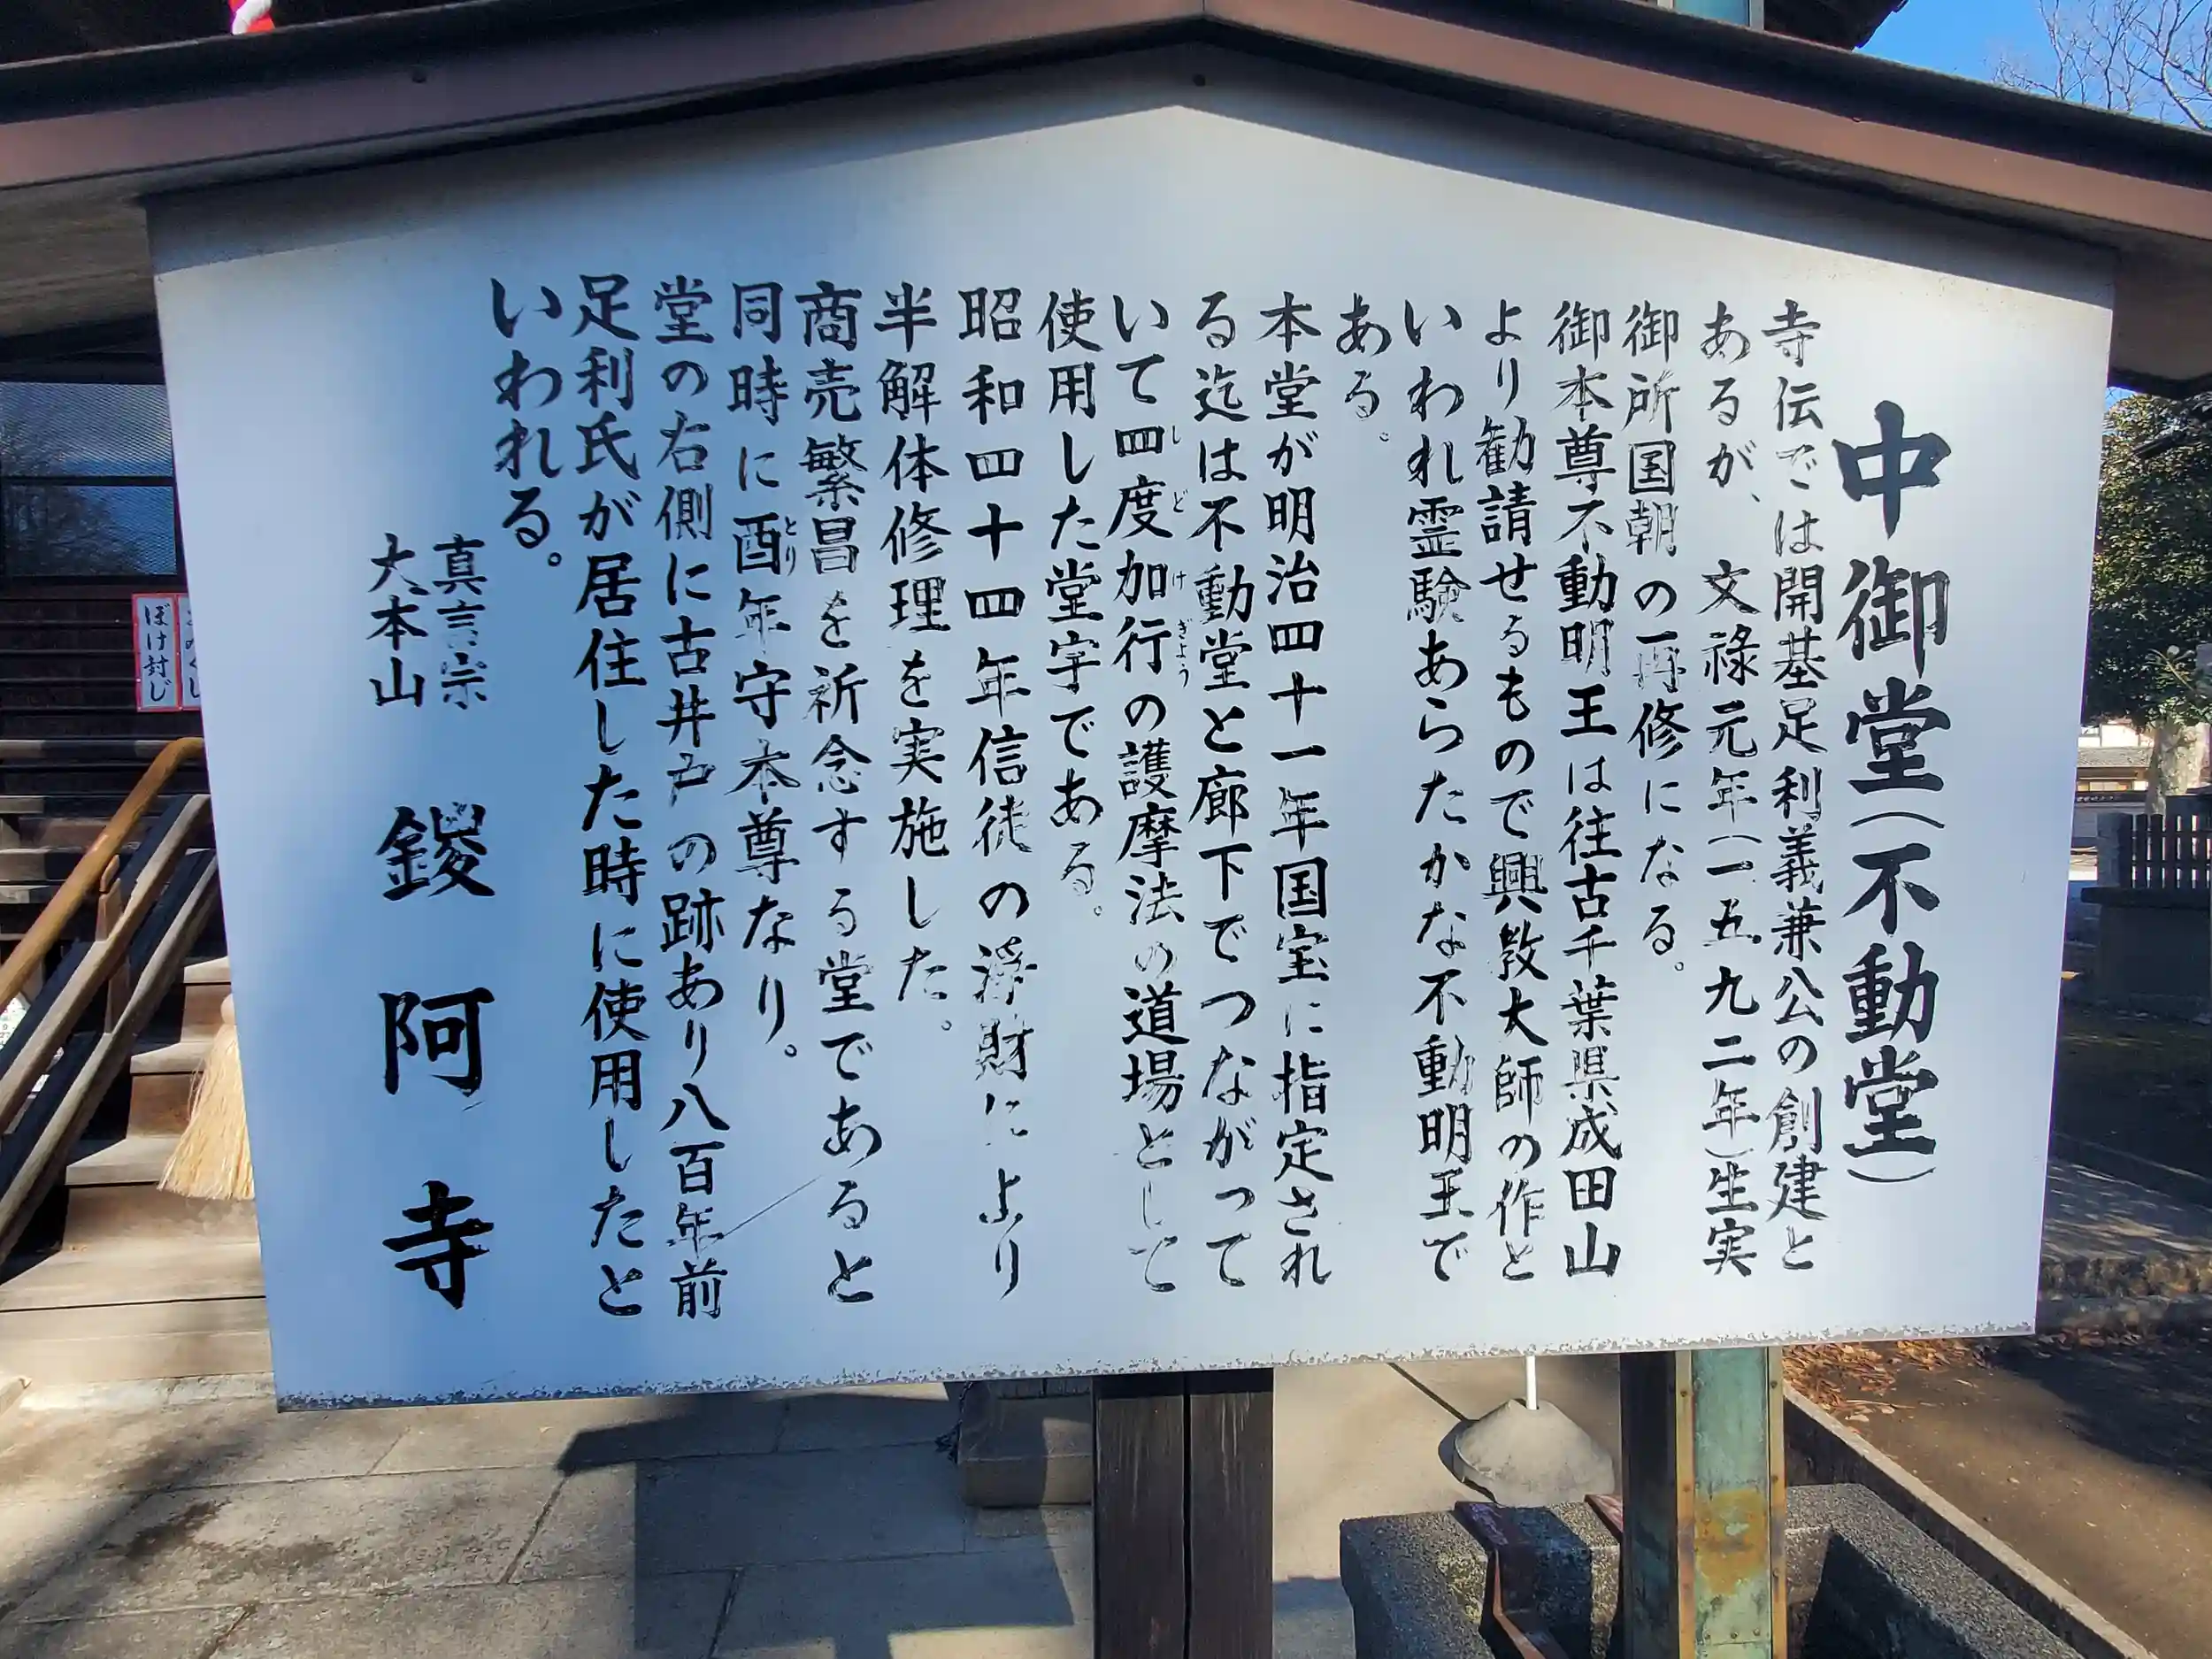 中御堂(不動堂)
寺伝では開基足利義兼公の創建と
あるが、文祿元年(一五九二年)生実
御所国朝の再修になる。
御本尊不動明王は往古千葉県成田山
より勧請せるもので興教大師の作と
いわれ霊験あらたかな不動明王で
ある。
本堂が明治四十一年国宝に指定され
る迄は不動堂と廊下でつながって
いて四度加行の護摩法の道場として
しどけぎょう
使用した堂宇である。
昭和四十四年信徒の浄財により
半解体修理を実施した。
商売繁昌を祈念する堂であると
同時に酉年守本尊なり。
とり
堂の右側に古井戸の跡あり八百年前
足利氏が居住した時に使用したと
いわれる。
真言宗
大本山
鑁阿寺
ぼけ封じ